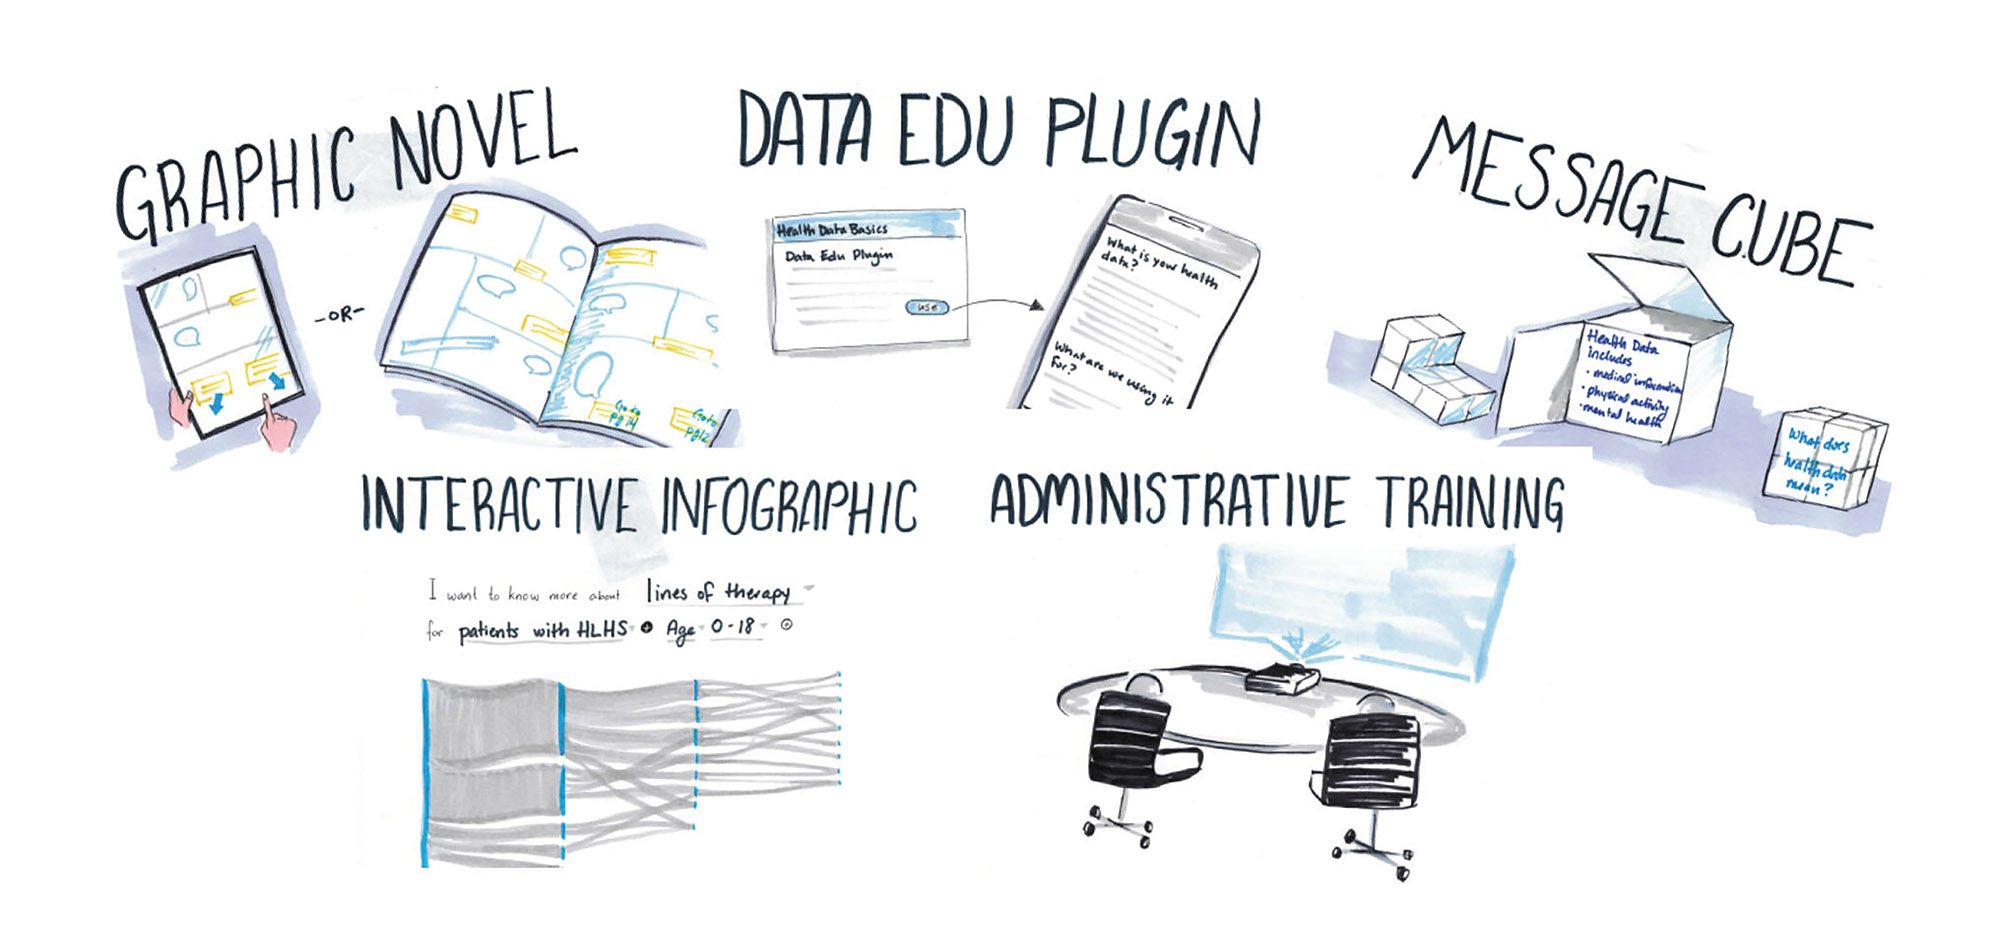 GRAPHIC NOVEL
-OR-
Go to
pg 14
Go to
pg 12
DATA EDU PLUGIN
Health Data Basics
Data Edu Plugin
use
What is your health
data?
What are we using it
for?
MESSAGE CUBE
Health Data
includes
• medical information
• physical activity
• mental health
What does
health data
mean?
INTERACTIVE INFOGRAPHIC
I want to know more about lines of therapy
for patients with HLHS Age 0-18
ADMINISTRATIVE TRAINING